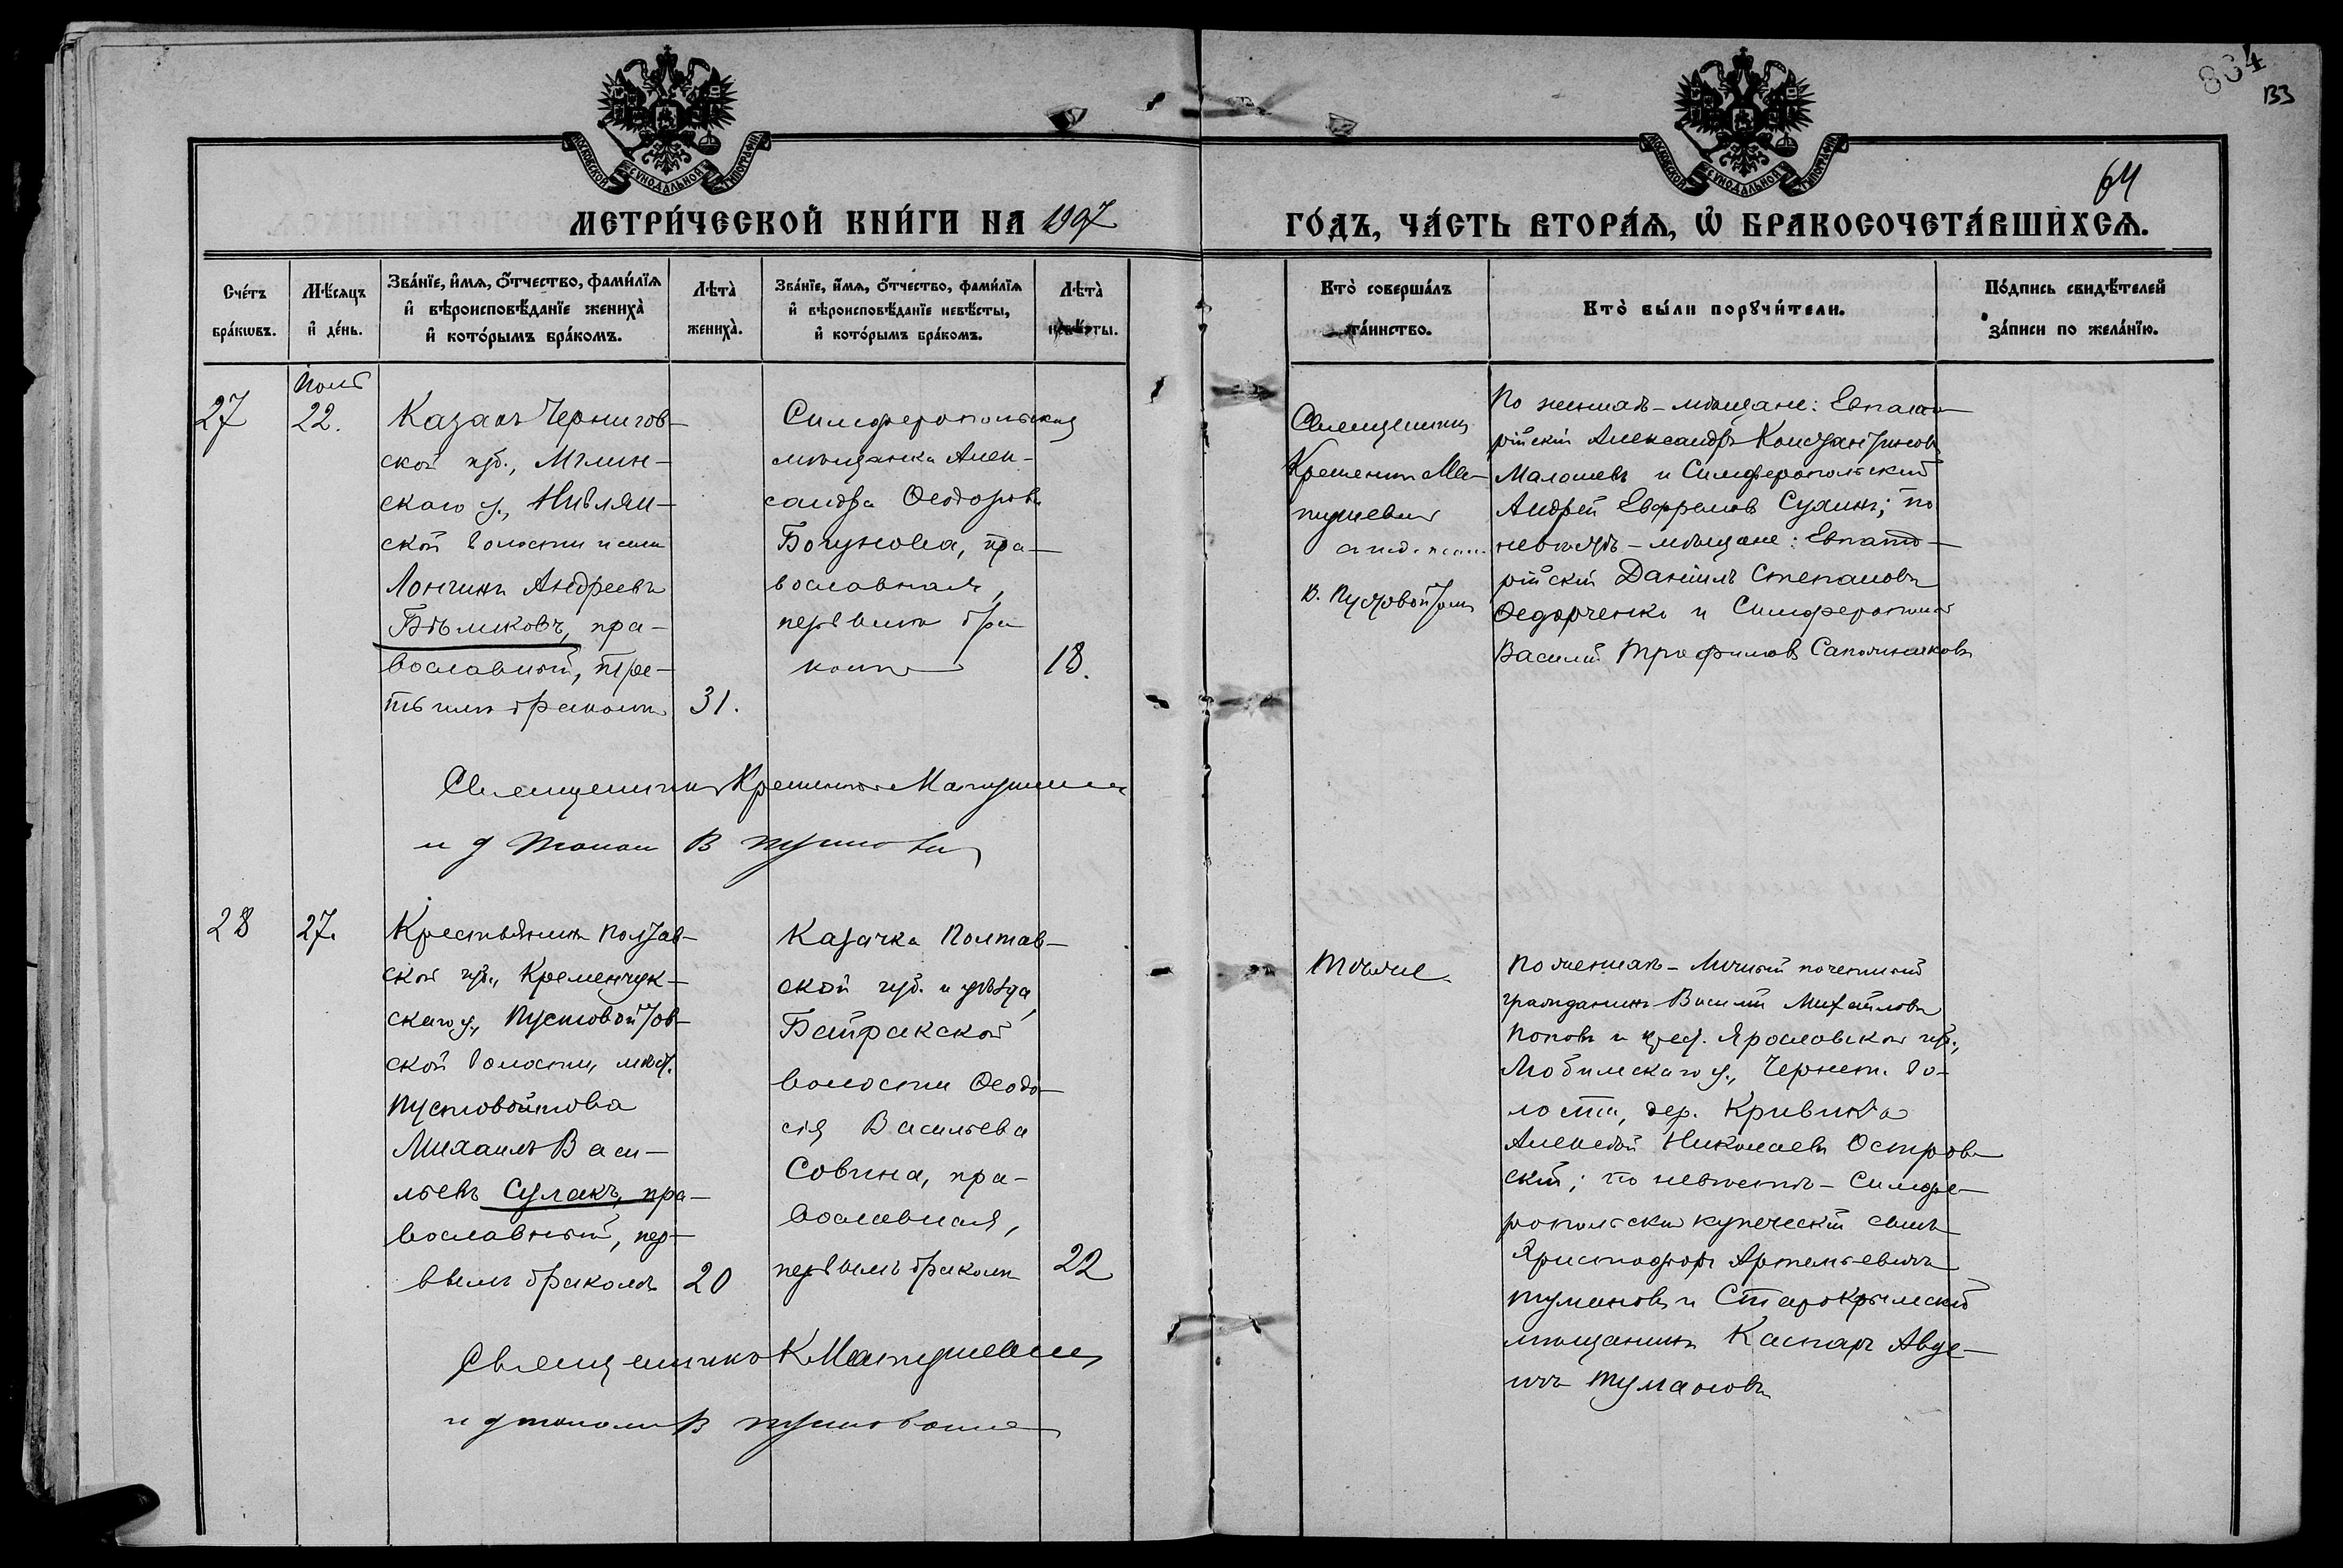 834
133
64
МОСКОВСКОЙ СѴНОДАЛЬНОЙ ТИПОГРАФІИ
МОСКОВСКОЙ СѴНОДАЛЬНОЙ ТИПОГРАФІИ
МЕТРИ́ЧЕСКОЙ КНИ́ГИ НА 1907
ГО́ДЪ, ЧА́СТЬ ВТОРА́Ѧ, Ѽ БРАКОСОЧЕТА́ВШИХСѦ.
Сче́тъ
бра́кѡвъ.
Мѣ́сяцъ
и҆ де́нь.
Зва́нїе, и҆́мѧ, ѻ҆́тчество, фами́лїѧ
и҆ вѣроисповѣ́данїе жениха̀
и҆ кото́рымъ бра́комъ.
Лѣта̀
жениха̀.
Зва́нїе, и҆́мѧ, ѻ҆́тчество, фами́лїѧ
и҆ вѣроисповѣ́данїе невѣ́сты,
и҆ кото́рымъ бра́комъ.
Лѣта̀
невѣ́сты.
Кто̀ соверша́лъ
та́инство.
Кто̀ бы́ли порꙋчи́тели.
По́дпись свидѣ́телей
за́писи по жела́нїю.
27
22.
Казакъ Чернигов-
ской губ., Мглин-
скаго у., Нивлян-
ской волости и села
Лонгинъ Андреевъ
Бѣликовъ, пра-
вославный, тре-
тьимъ бракомъ
31.
Симферопольская
мѣщанка Алек-
сандра Ѳеодорова
Богунова, пра-
вославная,
первымъ бра-
комъ
18.
Священникъ
В. Пустовойтовъ
По женихѣ - мѣщане: Евпато-
рійскій Александръ Константиновъ
Малошевъ и Симферопольскій
Андрей Ефремовъ Сухинъ; по
невѣстѣ - мѣщане: Евпато-
рійскій Даніилъ Степановъ
Ѳедорченко и Симферопол.
Василій Трофимовъ Сапожниковъ
Священникъ
и д
В
28
27.
Крестьянинъ Полтав-
ской губ., Кременчуг-
скаго у., Пустовойтов-
ской волости, мѣст.
Пустовойтова
Михаилъ Васи-
льевъ Сулакъ, пра-
вославный, пер-
вымъ бракомъ
20
Казачка Полтав-
ской губ. и уѣзда
Байракской
волости Ѳеодо-
сія Васильева
Совина, пра-
вославная,
первымъ бракомъ
22
Тѣже
По женихѣ - Личный почетный
гражданинъ Василій Михайловъ
Поповъ и крест. Ярославской губ.,
Любимскаго у., Чернет. во-
лости, дер. Кривика
Алексѣй Николаевъ Остров-
скій; по невѣстѣ - Симфе-
ропольскій купеческій сынъ
Христофоръ Артемьевичъ
Тумановъ и Старокрымскій
мѣщанинъ Каспаръ Авде-
ичъ Тумановъ
Священникъ К
и д В